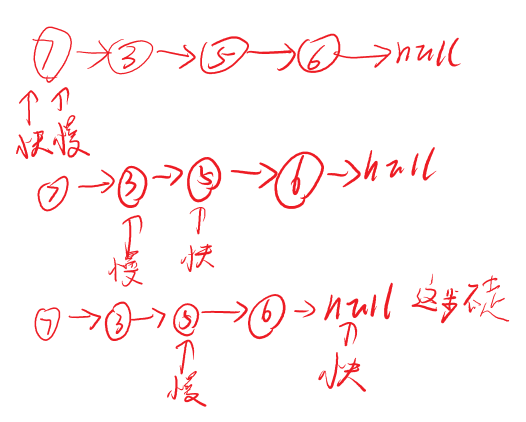 7 → 3 → 5 → 6 → null
快 慢
7 → 3 → 5 → 6 → null
慢 快
7 → 3 → 5 → 6 → null 这步不走
慢 快